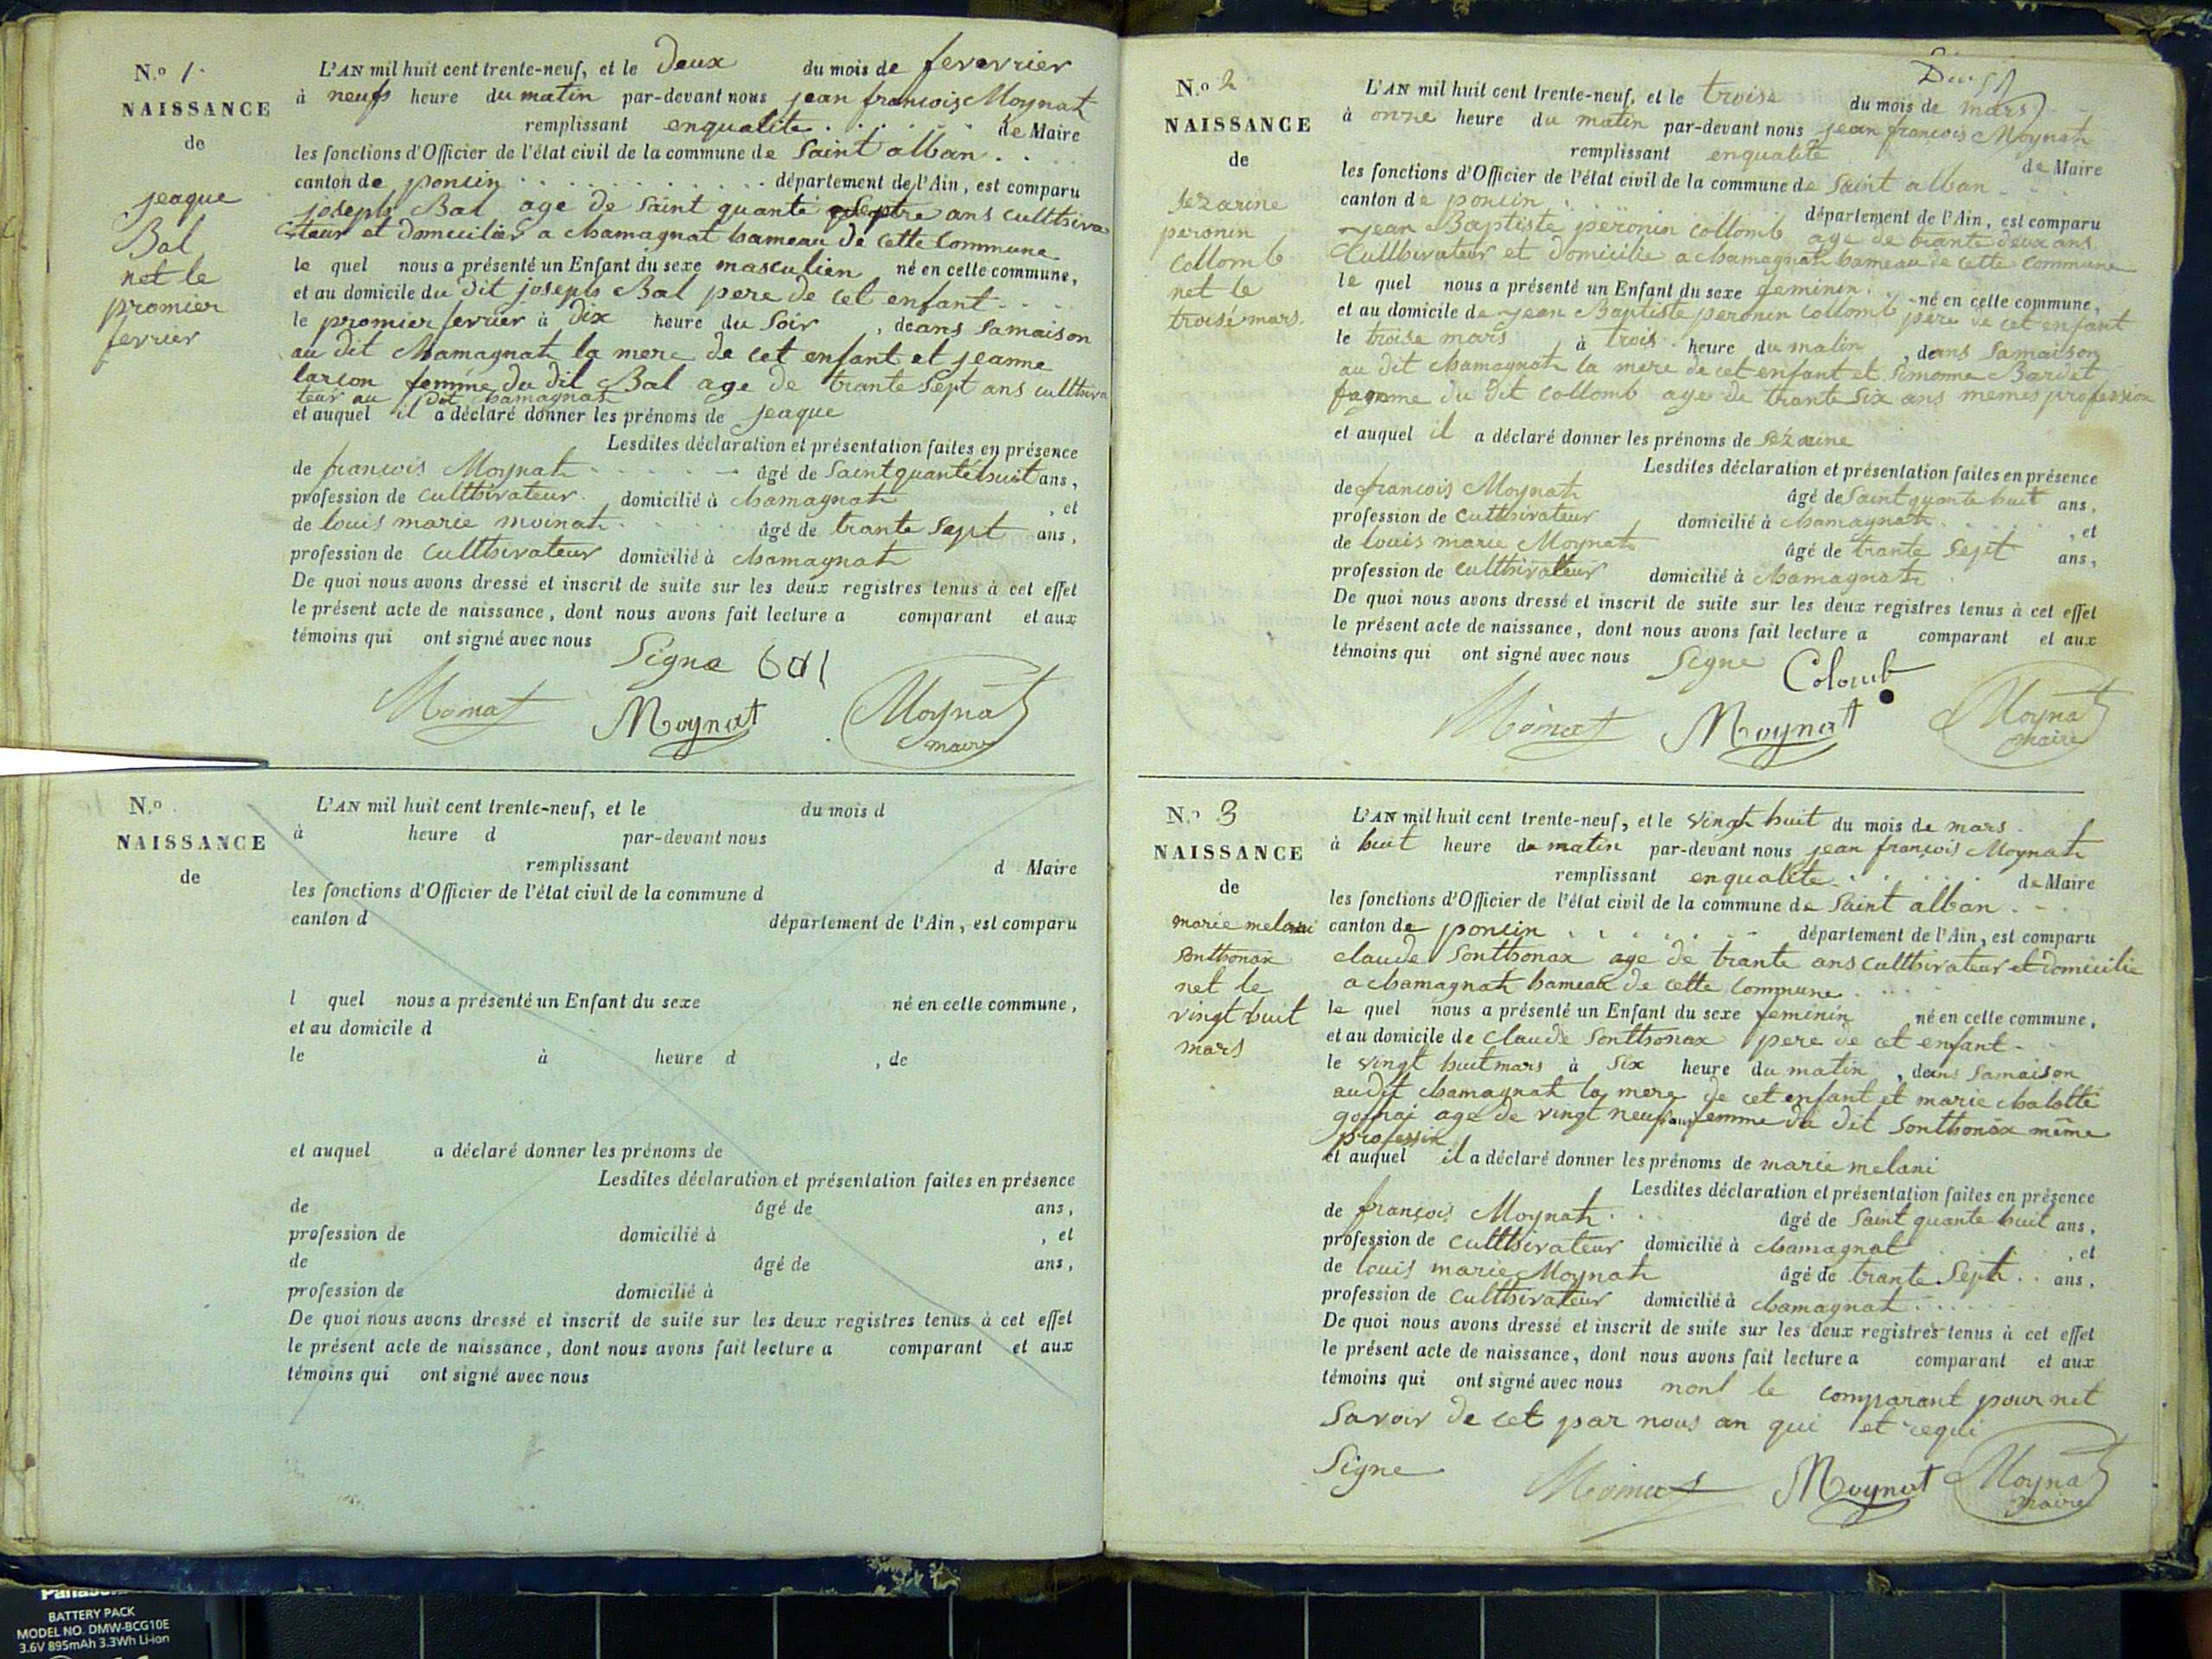 N.o 1.
NAISSANCE
de
jeaque
Bal
net le
promier
fevrier
L'AN mil huit cent trente-neuf, et le Deux du mois de feverrier
à neufs heure du matin par-devant nous jean francois Moynat
remplissant enqualite de Maire
les fonctions d'Officier de l'état civil de la commune de Saint alban
canton de poncin département de l'Ain, est comparu
joseph Bal age de Saint quante Septre ans culthiva
teur et domicilier a chamagnat hameau de cette commune
le quel nous a présenté un Enfant du sexe masculien né en cette commune,
et au domicile du dit joseph Bal pere de cet enfant
le promier fevrier à dix heure du Soir, deans Samaison
au dit chamagnat la mere de cet enfant et jeanne
larson femme du dit Bal age de trante Sept ans culthiva
teur au dit chamagnat
et auquel il a déclaré donner les prénoms de jeaque
Lesdites déclaration et présentation faites en présence
de francois Moynat âgé de Saint quante huit ans,
profession de culthivateur domicilié à chamagnat, et
de louis marie moinat âgé de trante Sept ans,
profession de culthivateur domicilié à chamagnat
De quoi nous avons dressé et inscrit de suite sur les deux registres tenus à cet effet
le présent acte de naissance, dont nous avons fait lecture a comparant et aux
témoins qui ont signé avec nous
Signe bal
Moinat Moynat Moynat
maire
N.o
NAISSANCE
de
L'AN mil huit cent trente-neuf, et le du mois d
à heure d par-devant nous
remplissant d Maire
les fonctions d'Officier de l'état civil de la commune d
canton d département de l'Ain, est comparu
l quel nous a présenté un Enfant du sexe né en cette commune,
et au domicile d
le à heure d , de
et auquel a déclaré donner les prénoms de
Lesdites déclaration et présentation faites en présence
de âgé de ans,
profession de domicilié à , et
de âgé de ans,
profession de domicilié à
De quoi nous avons dressé et inscrit de suite sur les deux registres tenus à cet effet
le présent acte de naissance, dont nous avons fait lecture a comparant et aux
témoins qui ont signé avec nous
N.o 2
NAISSANCE
de
Sezarine
peronin
collomb
net le
troisé mars.
L'AN mil huit cent trente-neuf, et le troise du mois de mars
à onne heure du matin par-devant nous jean francois Moynat
remplissant enqualite de Maire
les fonctions d'Officier de l'état civil de la commune de Saint alban
canton de poncin département de l'Ain, est comparu
jean Baptiste peronin collomb age de trante deux ans
Culthivateur et domicilie a chamagnat hameau de cette commune
le quel nous a présenté un Enfant du sexe feminin né en cette commune,
et au domicile de jean Baptiste peronin collomb pere de cet enfant
le troise mars à trois heure du matin, deans Samaison
au dit chamagnat la mere de cet enfant et Simonne Bardet
famme du dit collomb age de trante Six ans memes profession
et auquel il a déclaré donner les prénoms de Sézarine
Lesdites déclaration et présentation faites en présence
de francois Moynat âgé de Saint quante huit ans,
profession de culthivateur domicilié à chamagnat, et
de louis marie Moynat âgé de trante Sept ans,
profession de culthivateur domicilié à chamagnat
De quoi nous avons dressé et inscrit de suite sur les deux registres tenus à cet effet
le présent acte de naissance, dont nous avons fait lecture a comparant et aux
témoins qui ont signé avec nous Signe Colomb
Moinat Moynat Moynat
maire
N.o 3
NAISSANCE
de
marie melani
Sonthonax
net le
vingt huit
mars
L'AN mil huit cent trente-neuf, et le vingt huit du mois de mars
à huit heure du matin par-devant nous jean françois Moynat
remplissant enqualite de Maire
les fonctions d'Officier de l'état civil de la commune de Saint alban
canton de poncin département de l'Ain, est comparu
claude Sonthonax age de trante ans culthivateur et domicilie
a chamagnat hameau de cette commune
le quel nous a présenté un Enfant du sexe feminin né en cette commune,
et au domicile de claude Sonthonax pere de cet enfant
le vingt huit mars à Six heure du matin, deans Samaison
au dit chamagnat la mere de cet enfant et marie chalotte
age de vingt neuf ans femme du dit Sonthonax même
professin
et auquel il a déclaré donner les prénoms de marie melani
Lesdites déclaration et présentation faites en présence
de françois Moynat âgé de Saint quante huit ans,
profession de culthivateur domicilié à chamagnat, et
de louis marie Moynat âgé de trante Sept ans,
profession de culthivateur domicilié à chamagnat
De quoi nous avons dressé et inscrit de suite sur les deux registres tenus à cet effet
le présent acte de naissance, dont nous avons fait lecture a comparant et aux
témoins qui ont signé avec nous nont le comparant pour net
Savoir de cet par nous an qui et requi
Signe
Moinat Moynat Moynat
maire
Panasonic
BATTERY PACK
MODEL NO. DMW-BCG10E
3.6V 895mAh 3.3Wh Li-ion